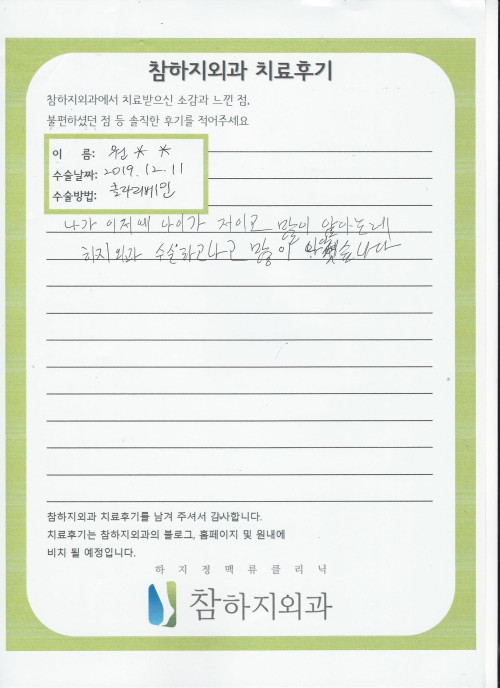 참하지외과 치료후기
참하지외과에서 치료받으신 소감과 느낀 점,
불편하셨던 점 등 솔직한 후기를 적어주세요
이 름: 원 * *
수술날짜: 2019. 12. 11
수술방법: 클라리베인
나가 이저에 나이가 저이로 많이 알다는데
하지외과 수술하고나고 많이
참하지외과 치료후기를 남겨 주셔서 감사합니다.
치료후기는 참하지외과의 블로그, 홈페이지 및 원내에
비치 될 예정입니다.
하지정맥류클리닉
참하지외과